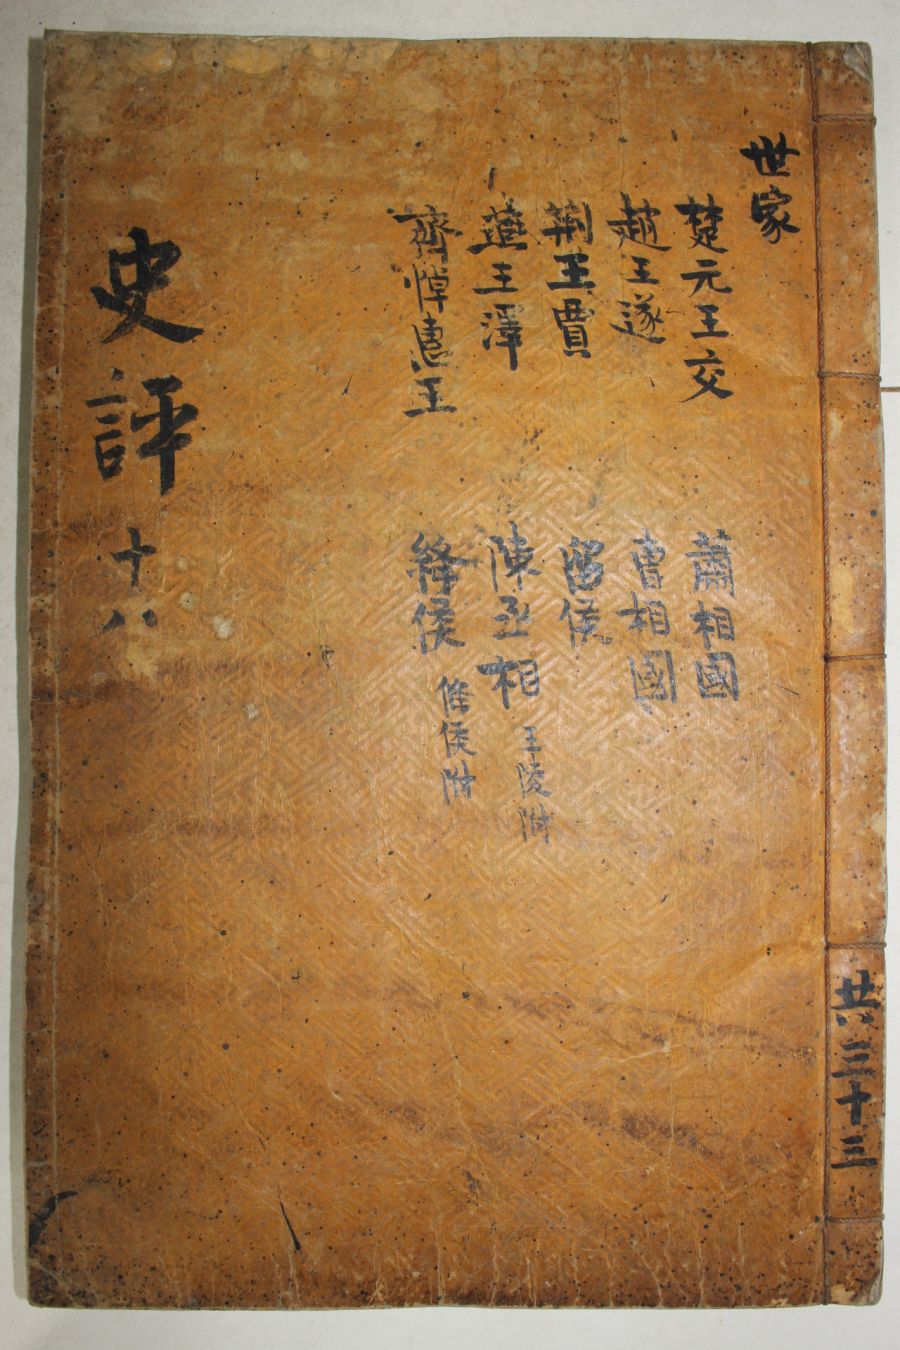 世家
楚元王交
趙王遂
荆王賈
燕王澤
齊悼惠王
蕭相國
曹相國
留侯
陳丞相 王陵附
絳侯 條侯附
史評 十八
共三十三